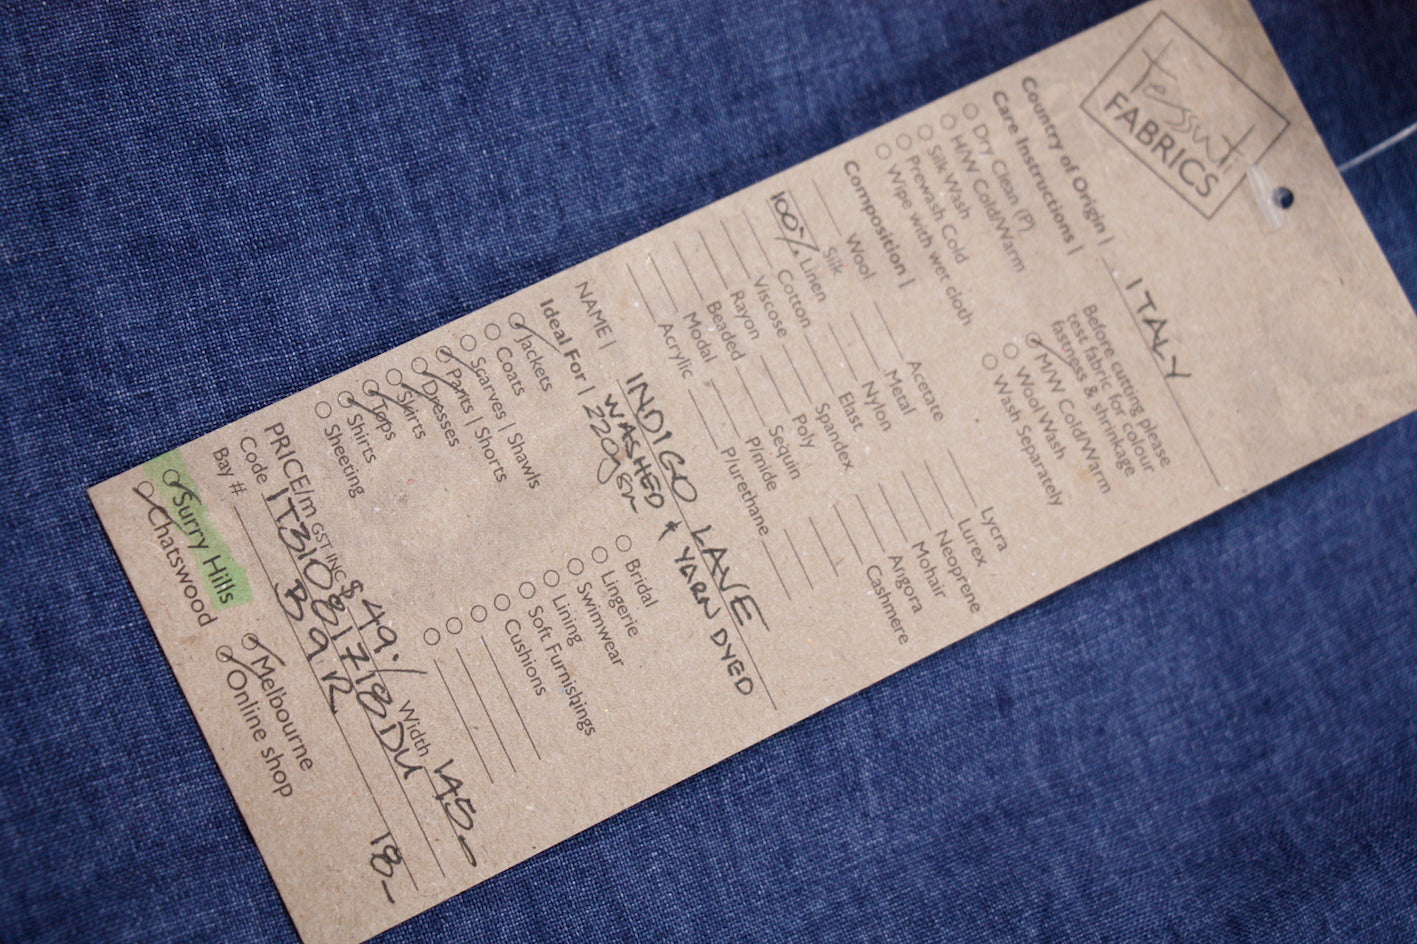 tessuti
FABRICS
Country of Origin | ITALY
Care Instructions |
Before cutting please
test fabric for colour
fastness & shrinkage
Dry Clean (P)
H/W Cold/Warm
Silk Wash
Prewash Cold
Wipe with wet cloth
M/W Cold/Warm
Wool Wash
Wash Separately
Composition |
Wool
Silk
100% Linen
Cotton
Viscose
Rayon
Beaded
Modal
Acrylic
Acetate
Metal
Nylon
Elast
Spandex
Poly
Sequin
P/mide
P/urethane
Lycra
Lurex
Neoprene
Mohair
Angora
Cashmere
NAME | INDIGO LAVE
WASHED & YARN DYED
220gsm
Ideal For |
Jackets
Coats
Scarves | Shawls
Pants | Shorts
Dresses
Skirts
Tops
Shirts
Sheeting
Bridal
Lingerie
Swimwear
Lining
Soft Furnishings
Cushions
PRICE/m GST INC $49./ Width 145-
Code IT31081718DU
Bay # B9R 18-
Surry Hills
Chatswood
Melbourne
Online shop